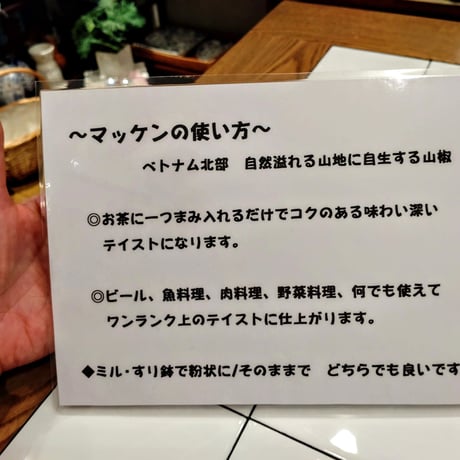 ～マッケンの使い方～
ベトナム北部 自然溢れる山地に自生する山椒
◎お茶に一つまみ入れるだけでコクのある味わい深い
テイストになります。
◎ビール、魚料理、肉料理、野菜料理、何でも使えて
ワンランク上のテイストに仕上がります。
◆ミル・すり鉢で粉状に/そのままで どちらでも良いです